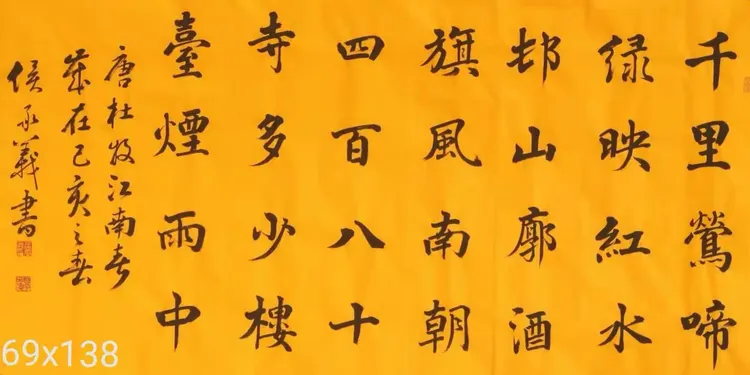 千里鶯啼
绿映紅水
邨山廓酒
旗風南朝
四百八十
寺多少樓
臺煙雨中
唐杜牧江南春
歲在己亥之春
侯承義書
69x138